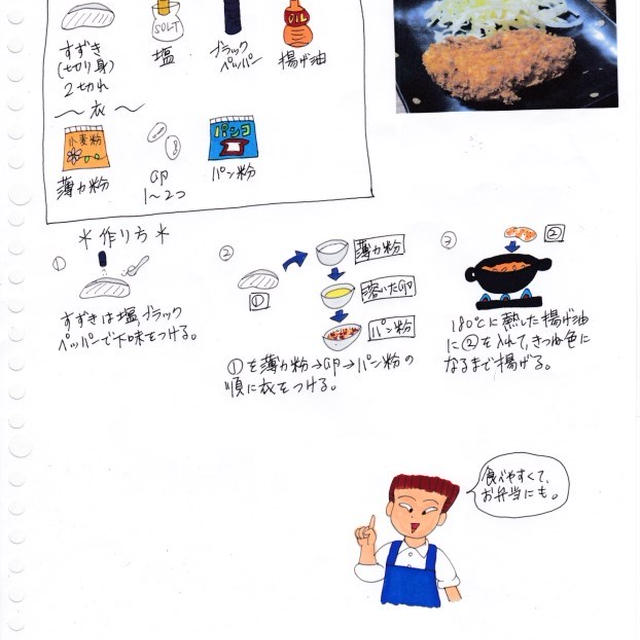 すずき
(切り身)
2切れ
SOLT
塩
ブラック
ペッパー
OIL
揚げ油
〜衣〜
小麦粉
薄力粉
卵
1〜2つ
パンコ
パン粉
＊作り方＊
①
すずきは塩、ブラック
ペッパーで下味をつける。
②
①
薄力粉
溶いた卵
パン粉
①を薄力粉→卵→パン粉の
順に衣をつける。
③
②
180℃に熱した揚げ油
に②を入れて、きつね色に
なるまで揚げる。
食べやすくて、
お弁当にも。